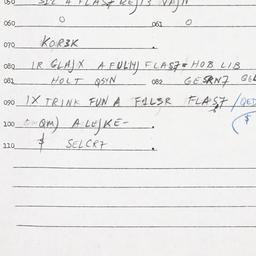 060 O 061 O
070 KOR3K
080 IR GLAJX A FULMJ FLAS7 = HOB LIB
081 HOLT QSYN 082
090 IX TRINK FUN A F1L3R FLAS7
100 A LEJKE-
110 $ SELCR7